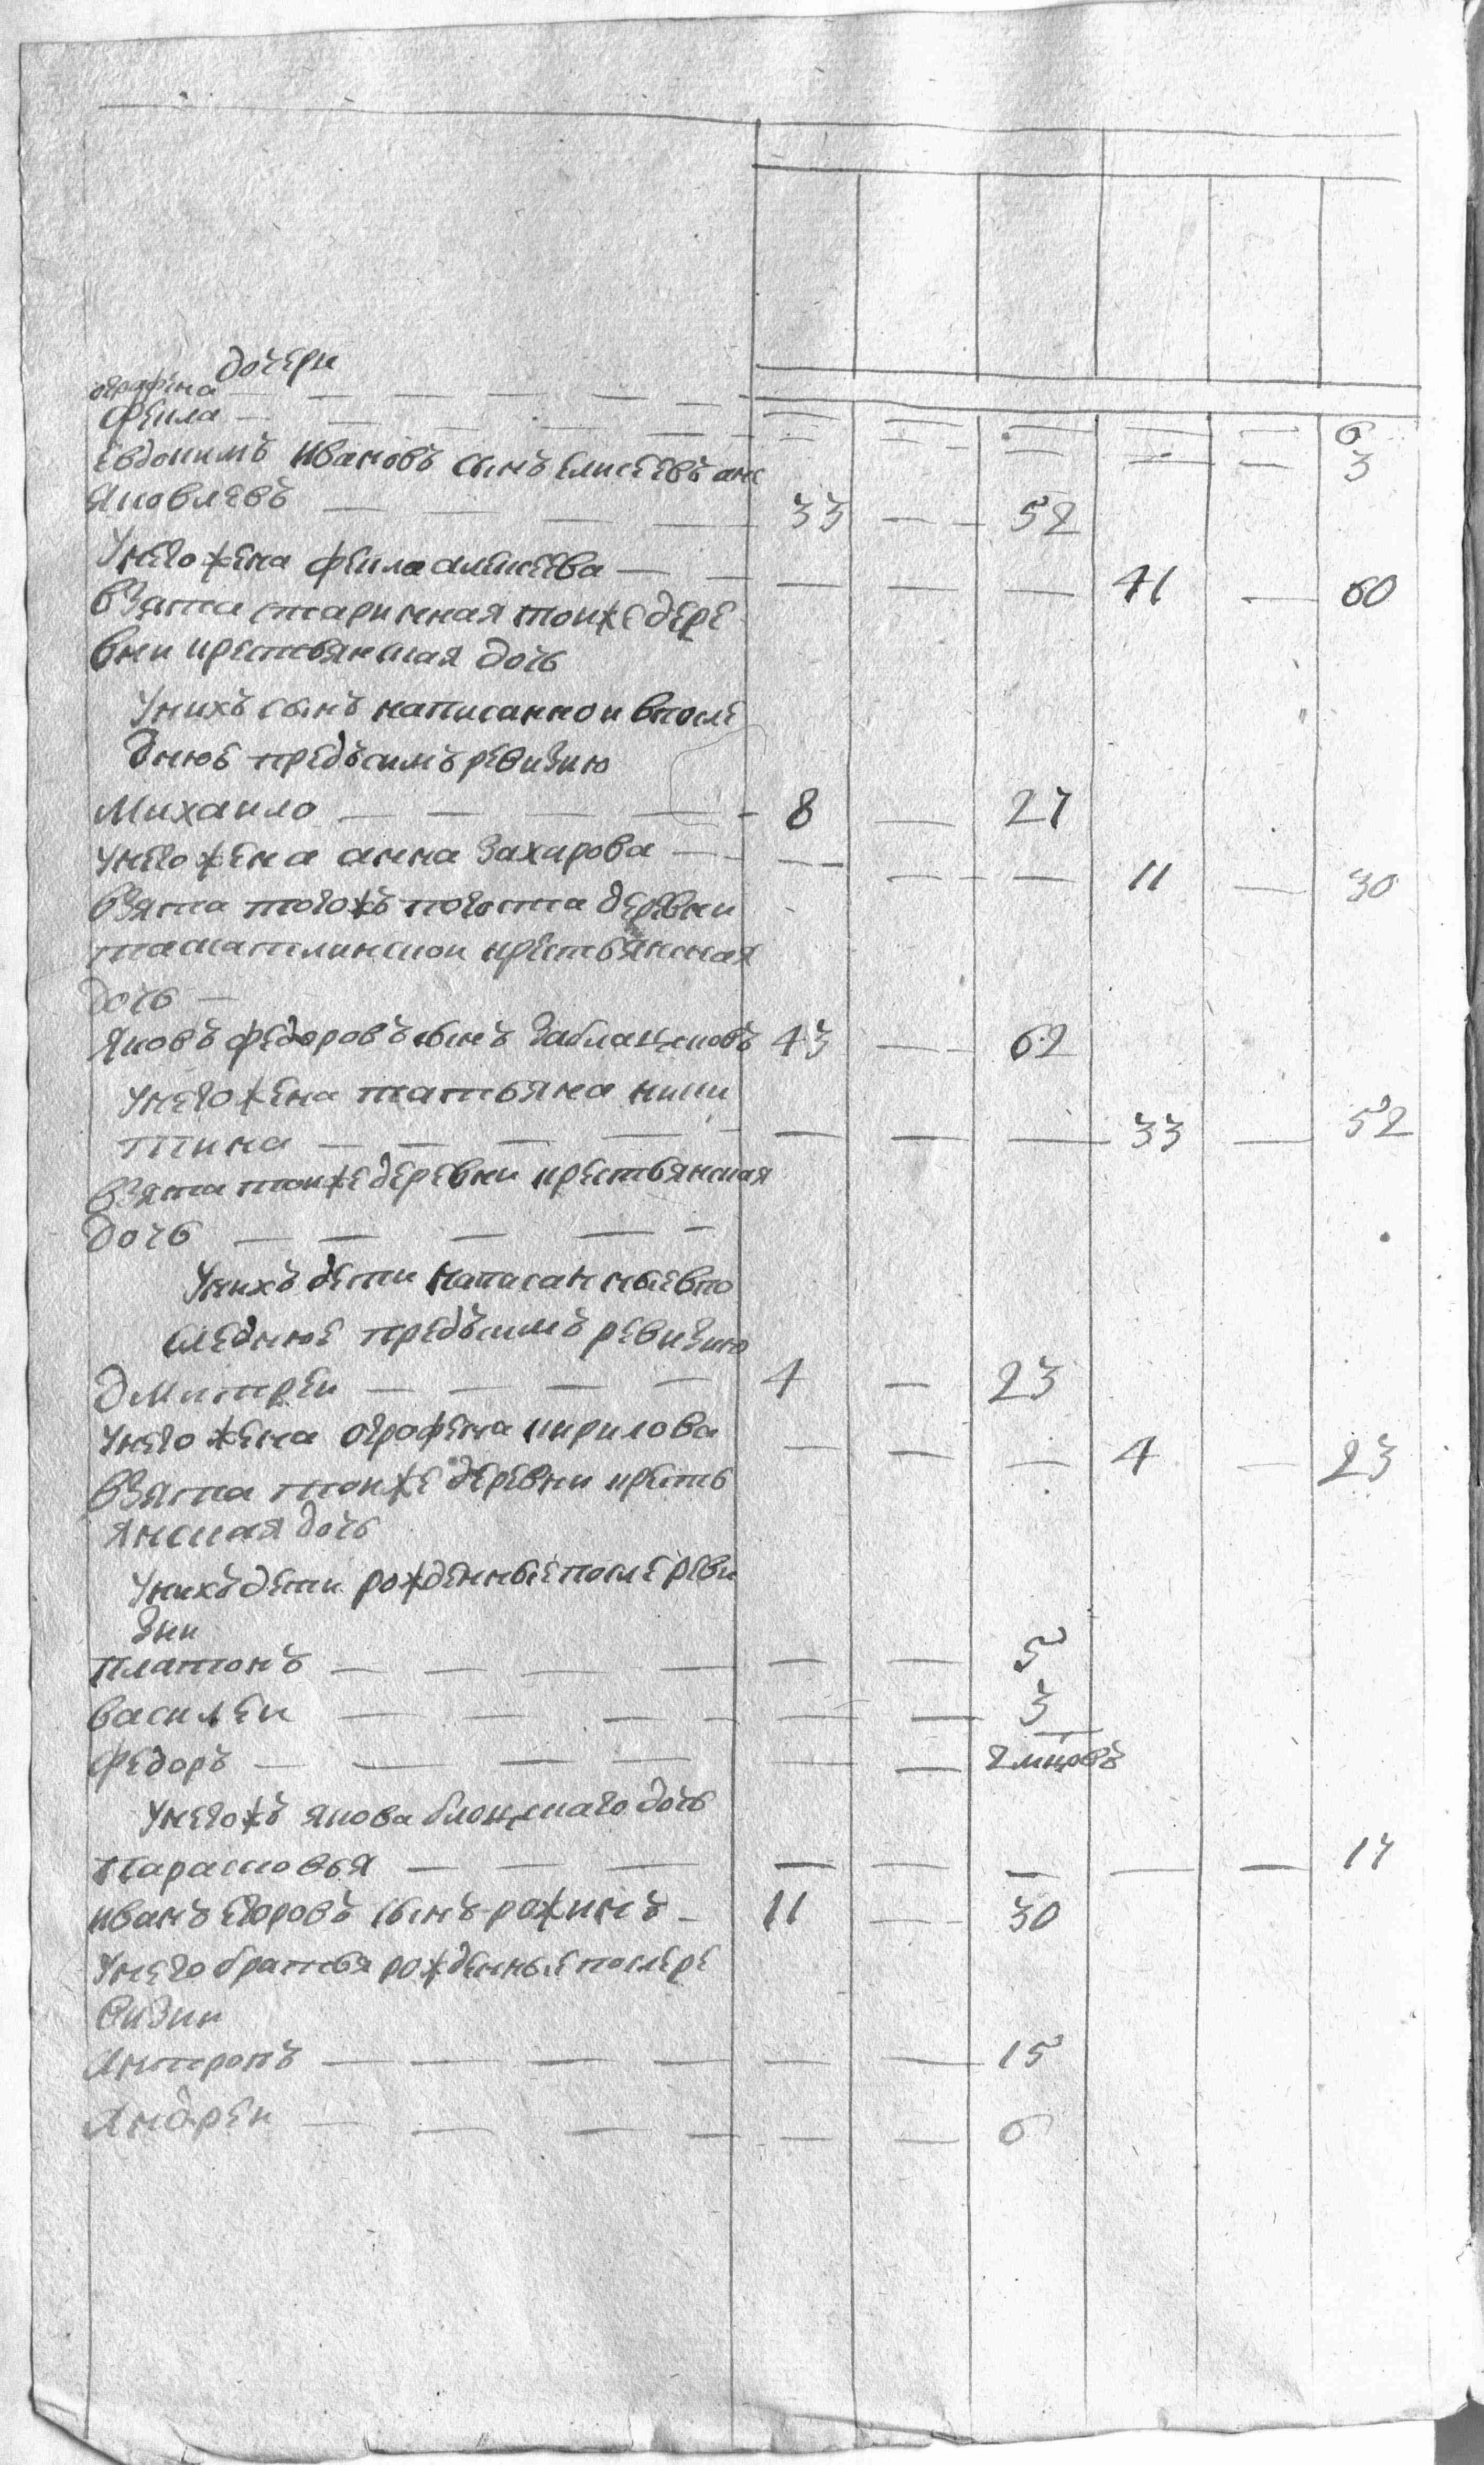 дочери
огрофена — — — — — — 6
Фекла — — — — — — 3
Евдокимъ Ивановъ сынъ Елисеевъ онже
Яковлевъ — — — — 33 — — 52
Унего жена фекла алексеева — — — — — 41 — 60
взята старинная тоиже дере
вни крестьянская дочь
Унихъ сынъ написаннои впосле
днюе предъсимъ ревизию
Михаило — — — — 8 — 27
унего жена анна Захарова — — — — — 11 — 30
взята тогожъ погоста деревни
крестьянская
дочь —
Яковъ федоровъ сынъ 43 — — 62
унего жена татьяна ники
тина — — — — — — — — 33 — 52
взята тоиже деревни крестьянская
дочь — — — — —
Унихъ дети написанныевпо
следнюе предъсимъ ревизию
Дмитреи — — — — 4 — 23
унего жена огрофена кирилова — — — 4 — 23
взята тоиже деревни кресть
янская дочь
Унихъ дети рожденныепослереви
зии
Платонъ — — — — — — 5
василеи — — — — — — 3
федоръ — — — — — — 2 мцовъ
Унегожъ якова дочь
Парасковья — — — — — — — — 17
иванъ егоровъ сынъ рожинъ — 11 — — 30
унего братья рожденныепослере
визии
Антропъ — — — — — — 15
Андреи — — — — — — 6